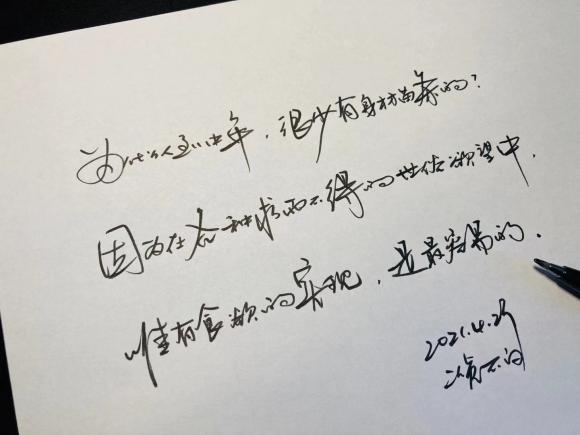 为什么人到中年，很少有身材苗条的？
因为在各种求而不得的世俗欲望中，
唯有食欲的实现，是最容易的。
2021.4.29